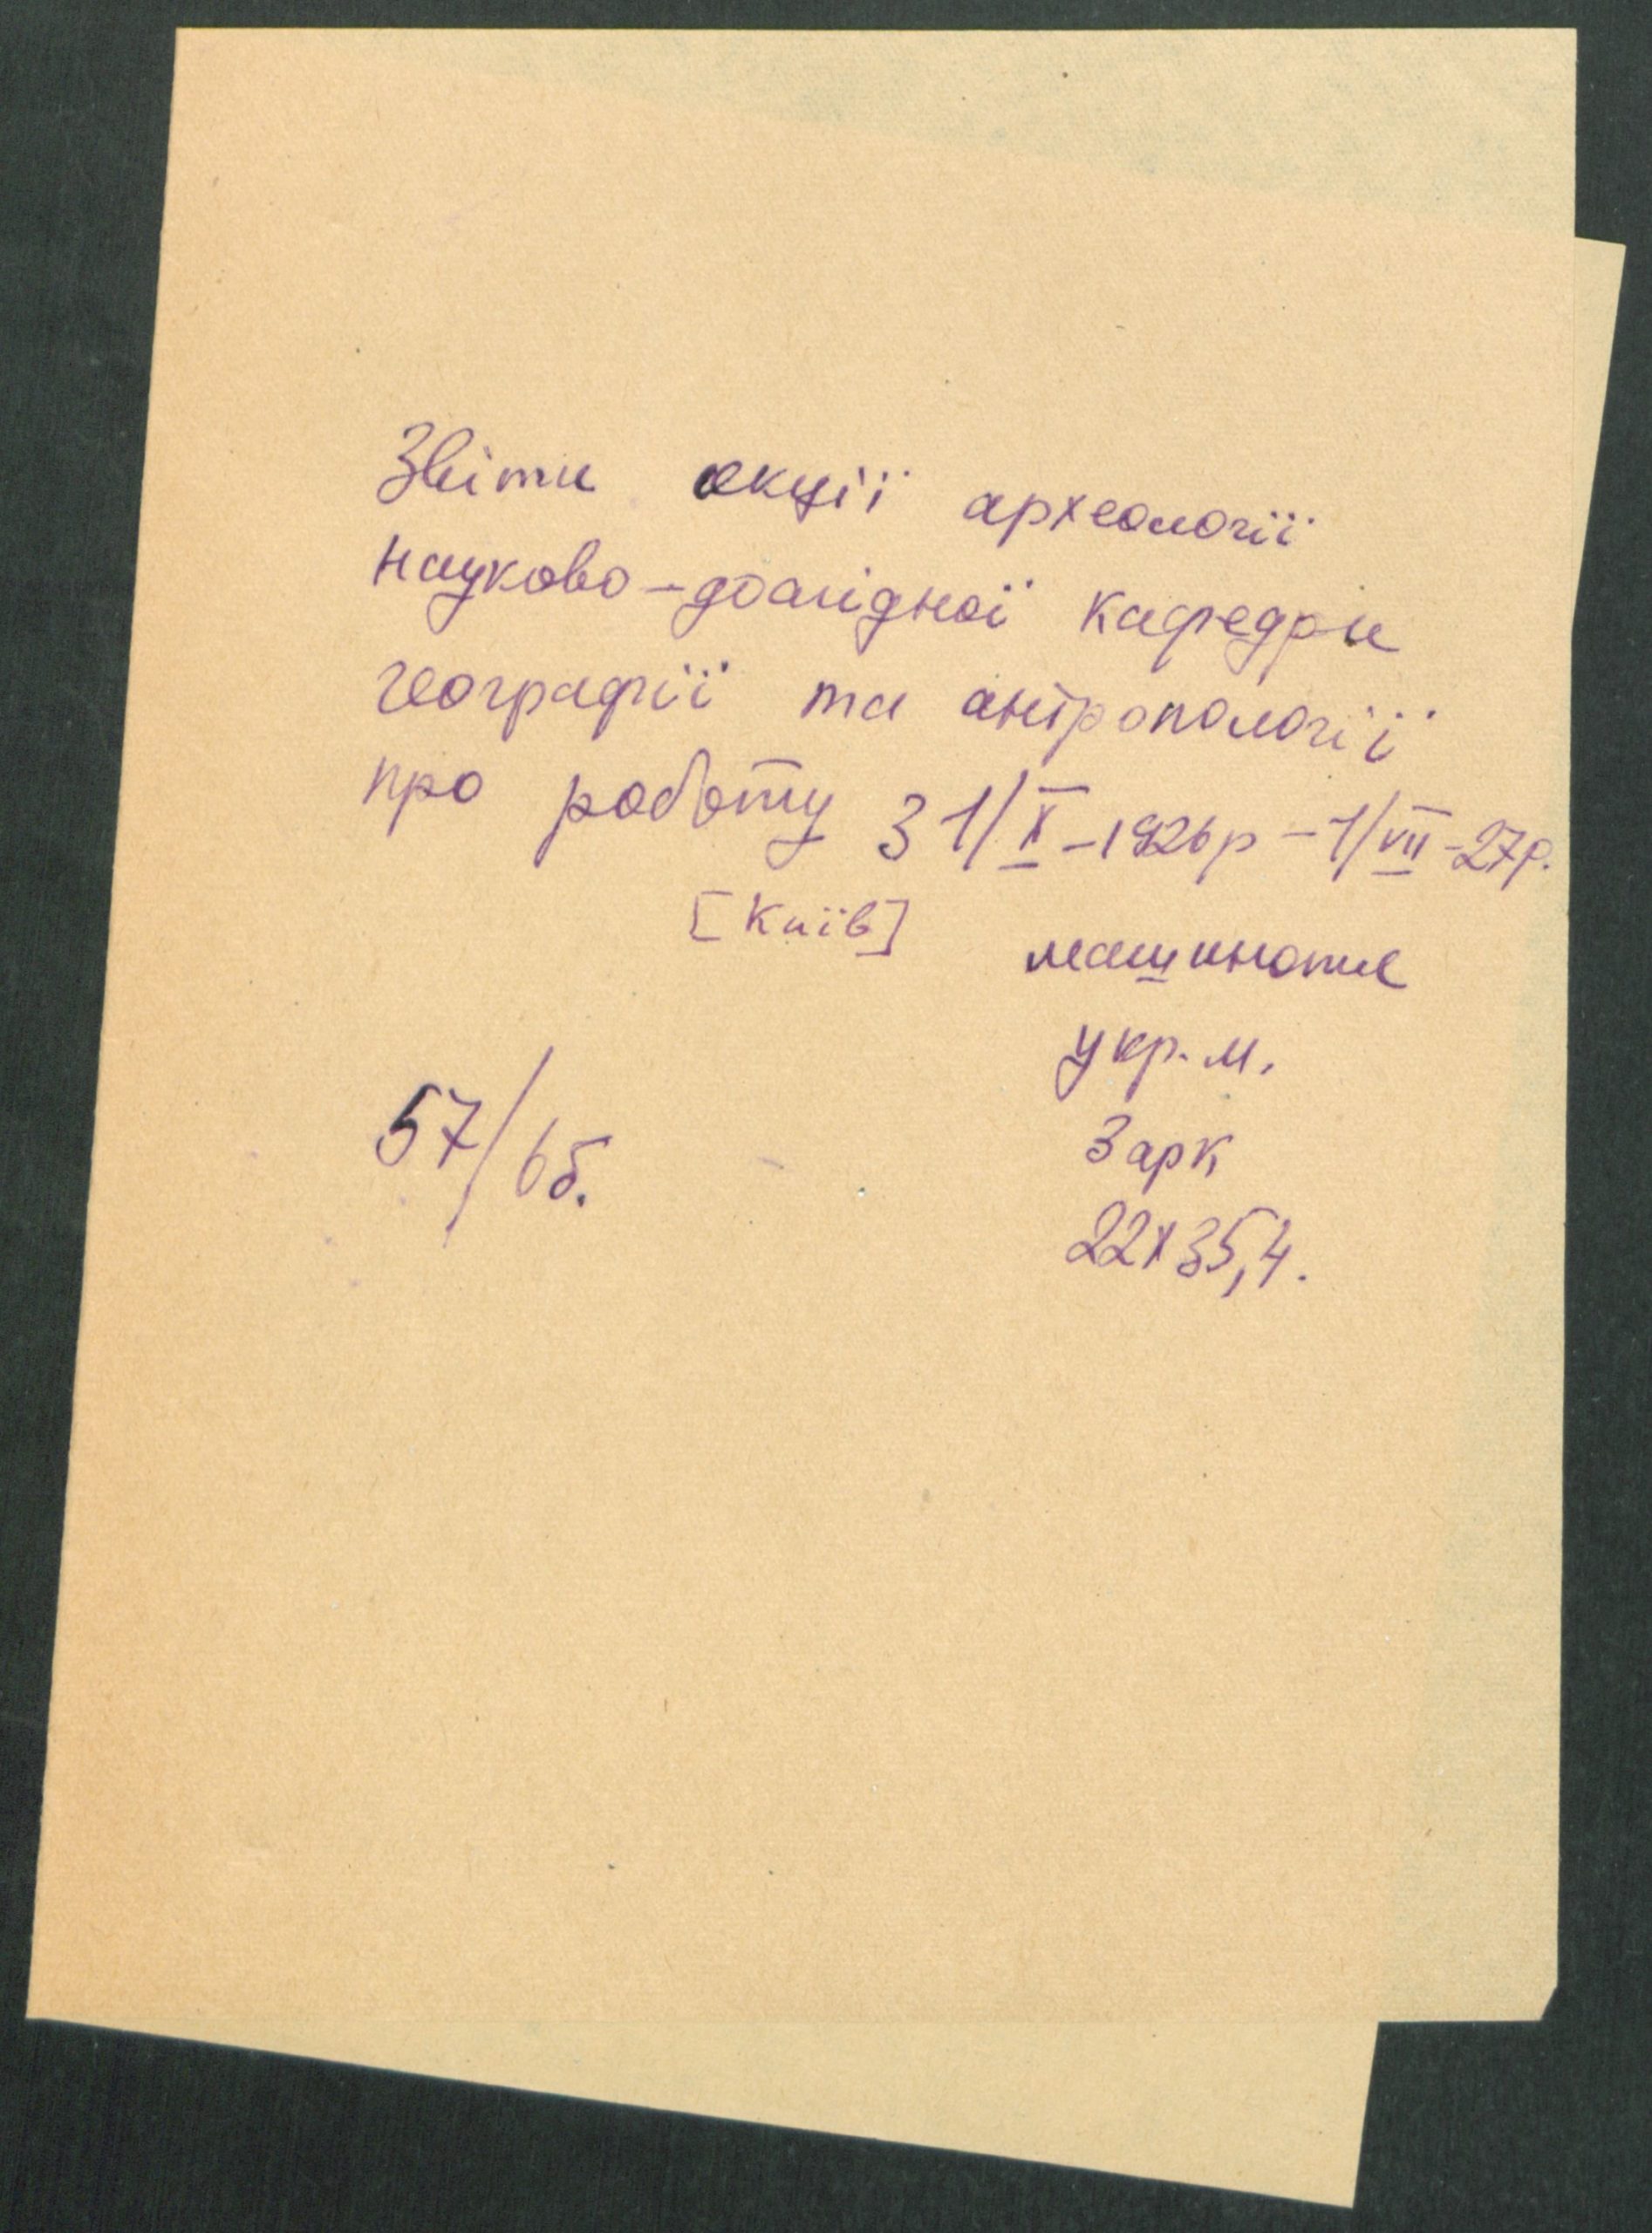 Звіти секції археології
науково-дослідної кафедри
географії та антропології
про роботу з 1/X-1926р-1/VII-27р.
[Київ]
машинопис
укр. м.
3 арк
22х35,4.
57/6б.